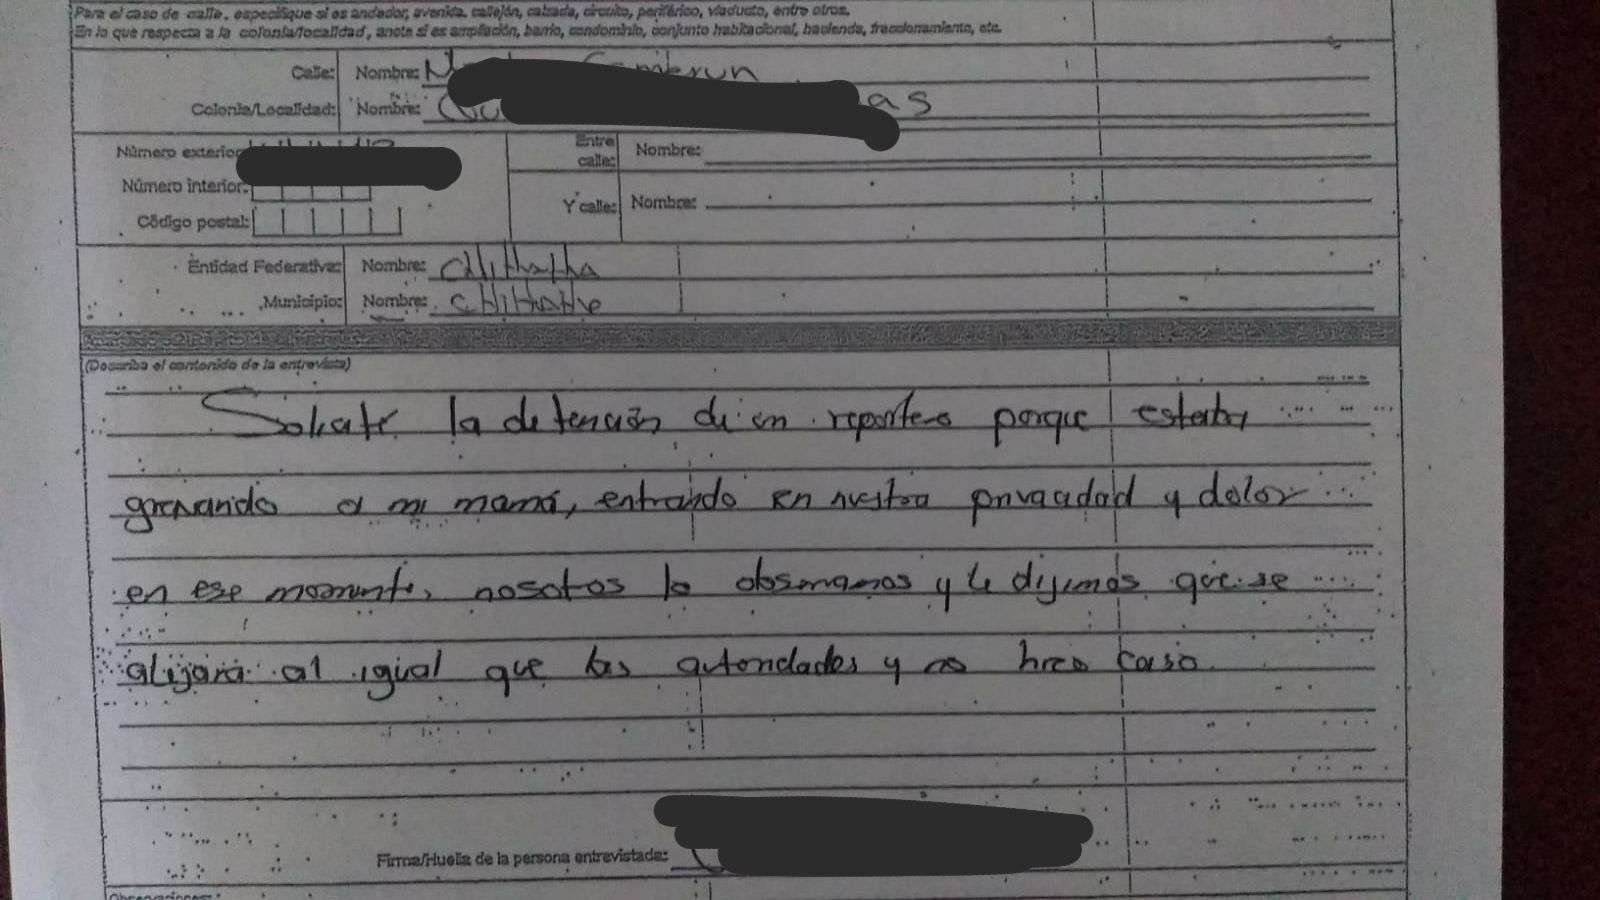 Para el caso de calle, especifique si es andador, avenida, callejón, calzada, circuito, periférico, viaducto, entre otros.
En lo que respecta a la colonia/localidad, anote si es ampliación, barrio, condominio, conjunto habitacional, hacienda, fraccionamiento, etc.
Calle: Nombre:
Colonia/Localidad: Nombre: as
Número exterior:
Entre calle: Nombre:
Número interior:
Y calle: Nombre:
Código postal:
Entidad Federativa: Nombre: chihuahua
Municipio: Nombre: chihuahua
(Describa el contenido de la entrevista)
Solicite la detención de un reportero porque estaba
gravando a mi mamá, entrando en nuestra privacidad y dolor
en ese momento, nosotros lo observamos y le dijimos que se
alejara al igual que las autoridades y no hizo caso
Firma/Huella de la persona entrevistada:
Observaciones: